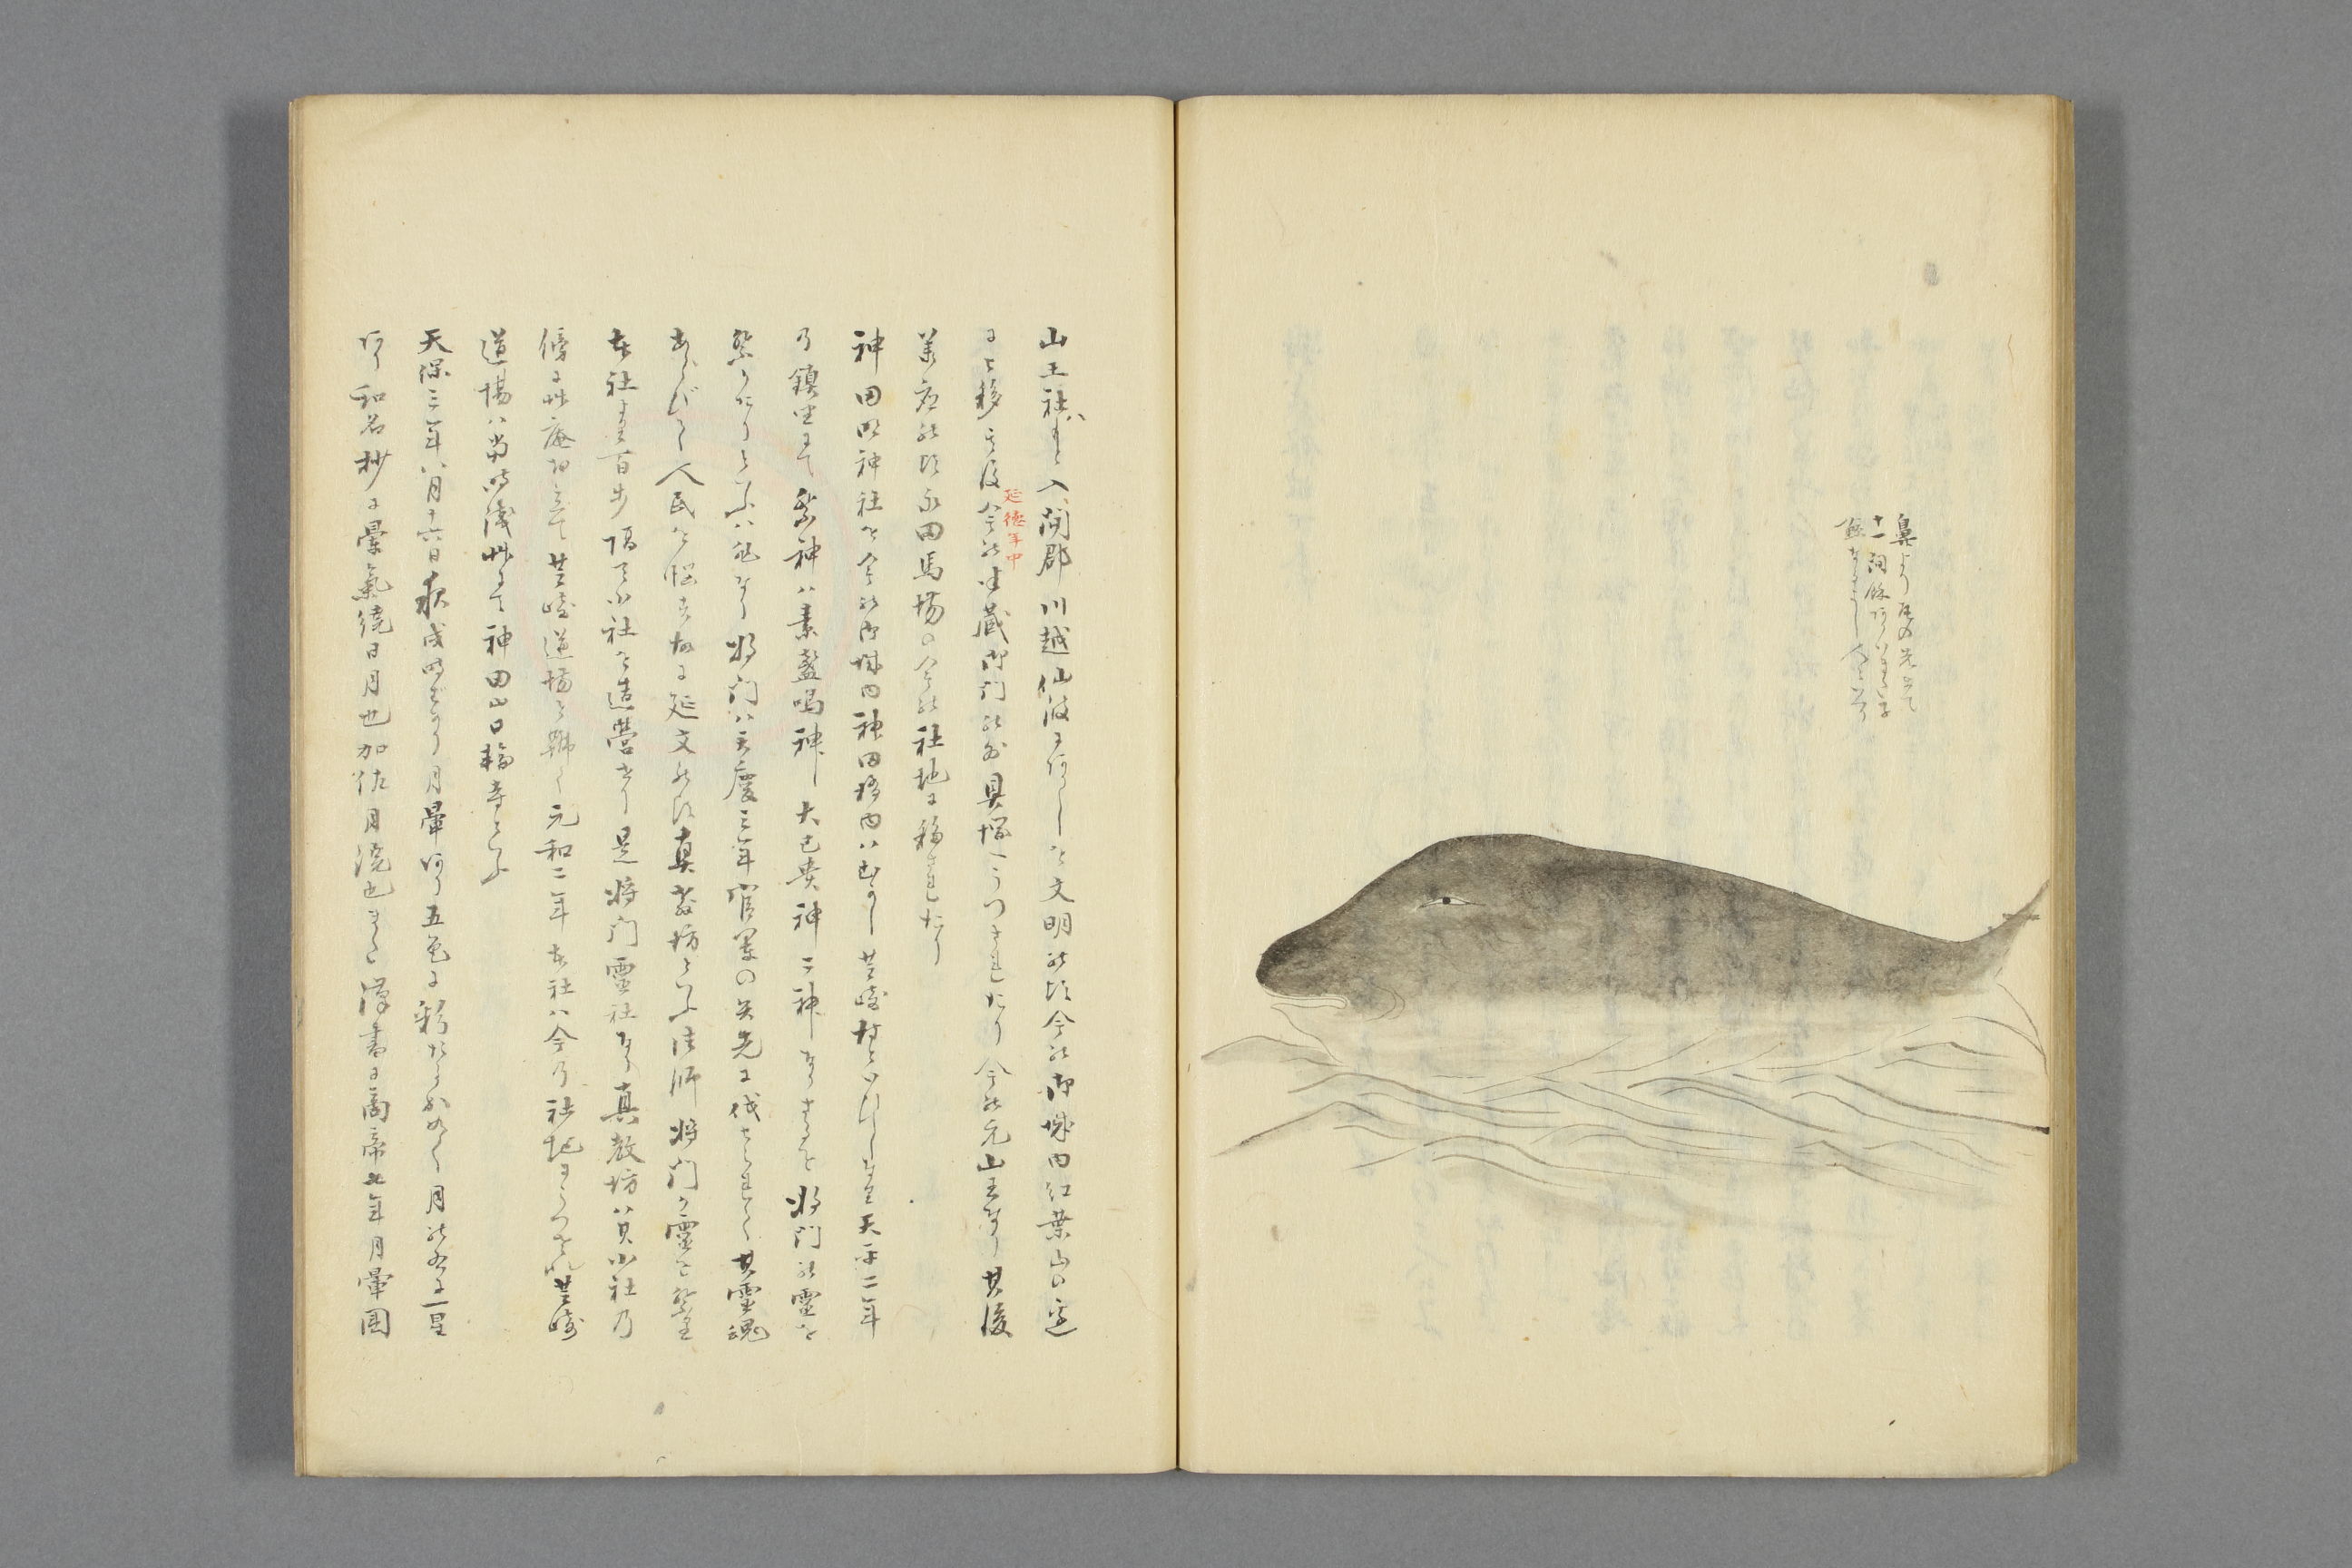 鼻より尾の先まて
十一間餘
山王社ハもと入間郡川越仙波にありしを文明の頃今の御城内紅葉山の邊
にを移其後今の半蔵御門の外貝塚へうつされたり今の元山王なり其後
延徳年中
萬の頃永田馬場の今の社地に移されたり
神田明神社を今の御城内神田橋内ハむかし芝崎村といひしなり天平二年
乃鎮坐にて祭神ハ素盞嗚神大己貴神二神なりしを将門の靈を
祭りたりといふハ非なり将門ハ天慶三年官軍の矢先に伐せられて其靈魂
あらびて人民を悩す故に延文の頃真教坊といふ法師将門の靈を祭り
本社より百歩隔て小社を造營せり是将門靈社なり真教坊ハ其小社乃
傍に艸庵を立て芝崎道場と号く元和二年本社ハ今乃社地にうつされ芝崎
道場ハ當時浅艸にて神田山日輪寺といふ
天保三年八月十六日夜戌時ばかり月暈あり五色に彩たるか如く月の多に一星
あり和名抄に暈氣繞日月也加佐月繞也また漢書に高帝七年月暈圍